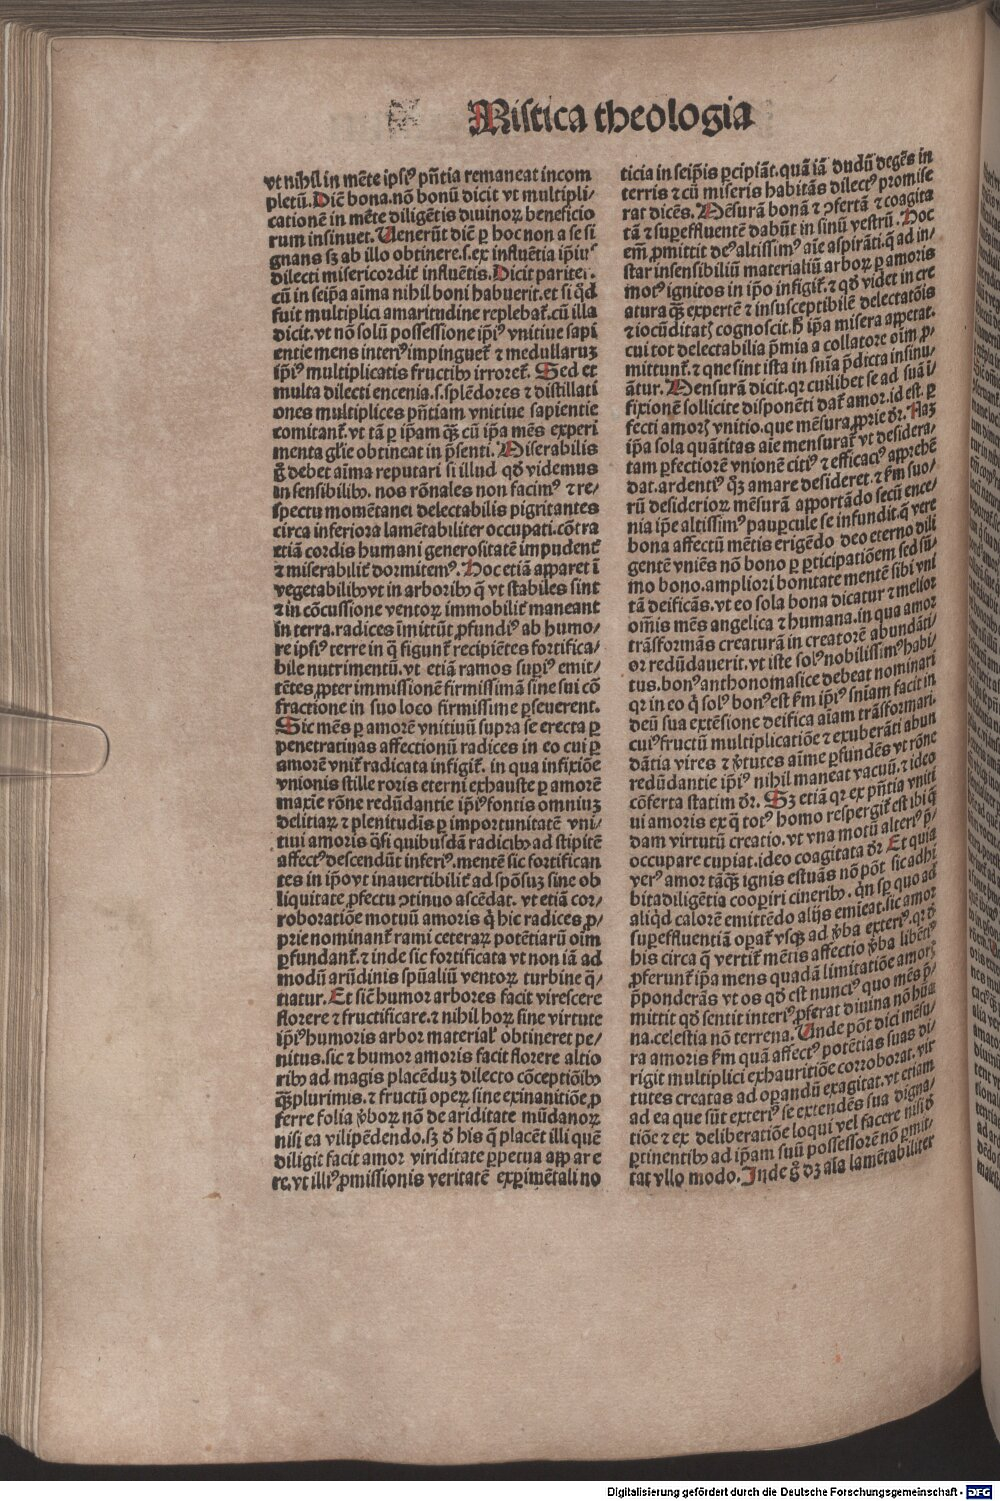 Mistica theologia
vt nihil in mēte ipsiꝰ pñtia remaneat incom
pletū. Diē bona. nō bonū dicit vt multipli/
cationē in mēte diligētis diuinoꝝ beneficio
rum insinuet. Uenerūt diē ꝑ hoc non a se si
gnans sꝫ ab illo obtinere. s. ex influētia ip̄iuˢ
dilecti misericordit̄ influētis. Dicit pariter.
cū in seip̄a aīma nihil boni habuerit. et si qͥd
fuit multiplici amaritudine replebat̄. cū illa
dicit. vt nō solū possessione ip̄iꝰ vnitiue sapi
entie mens interiꝰ impinguet̄ ⁊ medullaruꝫ
ip̄iꝰ multiplicatis fructibꝰ irroret̄. Sed et
multa dilecti encenia. s. splēdores ⁊ distillati
ones multiplices pñtiam vnitiue sapientie
comitant̄. vt tā ꝑ ip̄am qꝫ̄ cū ip̄a mēs experi
menta gl̄ie obtineat in p̄senti. Miserabilis
g̊ debet aīma reputari si illud qd̄ videmus
in sensibilibꝰ. nos rōnales non facimꝰ ⁊ re/
spectu momētanei delectabilis pigritantes
circa inferiora lamētabiliter occupati. cōtra
etiā cordis humani generositatē impudent̄
⁊ miserabilit̄ dormitemꝰ. Hoc etiā apparet ī
vegetabilibꝰ vt in arboribꝰ q̄ vt stabiles sint
⁊ in cōcussione ventoꝝ immobilit̄ maneant
in terra. radices īmittūt ꝓfundiꝰ ab humo/
re ipsiꝰ terre in q̄ figunt̄ recipiētes fortifica/
bile nutrimentū. vt etiā ramos supiꝰ emit/
tētes ꝓpter immissionē firmissimā sine sui cō
fractione in suo loco firmissime ꝑseuerent.
Sic mēs ꝑ amorē vnitiuū supra se erecta ꝑ
penetratiuas affectionū radices in eo cui ꝑ
amorē vnit̄ radicata infigit̄. in qua infixiōe
vnionis stille roris eterni exhauste ꝑ amorē
maxīe rōne redūdantie ip̄iꝰ fontis omniuꝫ
delitiaꝝ ⁊ plenitudīs ꝑ importunitatē vni/
tiui amoris q̄si quibusdā radicibꝰ ad stipitē
affectꝰ descendūt inferiꝰ. mentē sic fortifican
tes in ip̄o vt inauertibilit̄ ad spōsuꝫ sine ob
liquitate ꝓfectu ꝯtinuo ascēdat. vt etiā cor/
roboratiōe motuū amoris qͥ hic radices ꝓ/
prie nominant̄ rami ceteraꝝ potētiarū oīm
ꝑfundant̄. ⁊ inde sic fortificata vt non iā ad
modū arūdinis sp̄ualiū ventoꝝ turbine q̄/
tiatur. Et sic̄ humor arbores facit virescere
florere ⁊ fructificare. ⁊ nihil hoꝝ sine virtute
ip̄iꝰ humoris arbor material̄ obtineret pe/
nitus. sic ⁊ humor amoris facit florere altio
ribꝰ ad magis placēduꝫ dilecto cōceptiōibꝰ
qꝫ̄plurimis. ⁊ fructū opeꝝ sine exinanitiōe ꝓ
ferre folia v̄boꝝ nō de ariditate mūdanoꝝ
nisi ea vilipēdendo. sꝫ ō his q̄ placēt illi quē
diligit facit amor viriditate ꝑpetua appare
re. vt illiꝰ ꝓmissionis veritatē exꝑimētali no
ticia in seip̄is ꝑcipiāt. quā iā dudū degēs in
terris ⁊ cū miseris habitās dilectꝰ promise
rat dicēs. Mēsurā bonā ⁊ ꝯfertā ⁊ coagita
tā ⁊ suꝑeffluentē dabūt in sinū vestrū. Hoc
em̄ ꝓmittit deꝰ altissimꝰ aīe aspirāti. q̄ ad in/
star insensibiliū materialiū arboꝝ ꝑ amoris
motꝰ ignitos in ip̄o infigit̄. ⁊ qd̄ videt in cre
atura qꝫ̄ expertē ⁊ insusceptibilē delectatōis
⁊ iocūditatꝭ cognoscit. h̄ ip̄a misera appetat.
cui tot delectabilia p̄mia a collatore oīm ꝓ/
mittunt̄. ⁊ que sint ista in sn̄ia p̄dicta insinu/
ātur. Mensurā dicit. qꝛ cuilibet se ad suā ī/
fixionē sollicite disponēti dat̄ amor. id est. ꝑ
fecti amorꝭ vnitio. que mēsura ꝓprie dr̄. Naꝫ
ip̄a sola quātitas aīe mensurat̄ vt desidera/
tam ꝑfectiorē vnionē citiꝰ ⁊ efficaciꝰ apprehē
dat. ardentiꝰ qͥꝫ amare desideret. ⁊ km̄ suo/
rū desiderioꝝ mēsurā apportādo secū ence/
nia ip̄e altissimꝰ pauꝑcule se infundit. q̄ vere
bona affectū mētis erigēdo deo eterno dili
gentē vniēs nō bono ꝑ ꝑticipatiōem sed sū/
mo bono. ampliori bonitate mentē sibi vni
tā deificās. vt eo sola bona dicatur ⁊ melior
om̄is mēs angelica ⁊ humana. in qua amor
trāsformās creaturā in creatorē abundāti/
or redūdauerit. vt iste solꝰ nobilissimꝰ habi/
tus. bonꝰ anthonomasice debeat nominari
qꝛ in eo qͥ solꝰ bonꝰ est km̄ ip̄iꝰ sn̄iam facit in
deū sua extēsione deifica aīam trāsformari.
cuiꝰ fructū multiplicatiōe ⁊ exuberāti abun
dātia vires ⁊ v̄tutes aīme ꝑfundēs vt rōne
redūdantie ip̄iꝰ nihil maneat vacuū. ⁊ ideo
cōferta statim dr̄. Sꝫ etiā qꝛ ex pñtia vniti
ui amoris ex q̄ totꝰ homo respergit̄ est ibi q̄
dam virtutū creatio. vt vna motū alteriꝰ p̄/
occupare cupiat. ideo coagitata dr̄ Et quia
verꝰ amor tāqꝫ̄ ignis estuās nō pōt sic adhi
bita diligētia cooꝑiri cineribꝰ. qn̄ sꝑ quo ad
aliqͥd calorē emittēdo alijs emicat. sic amor
suꝑeffluentiā oꝑat̄ vsqꝫ ad v̄ba exteriꝰ. qꝛ ō
his circa q̄ vertit̄ mētis affectio v̄ba libēti
ꝓferunt̄ ip̄a mens quadā limitatiōe amorꝭ
p̄ponderās vt os qd̄ est nunciꝰ quo mēs p̄/
mittit qd̄ sentit interiꝰ ꝓferat diuina nō hūa
na. celestia nō terrena. Unde pōt dici mēsu/
ra amoris km̄ quā affectꝰ potētias suas di/
rigit multiplici exhauritiōe corroborat. vir
tutes creatas ad oꝑandū exagitat. vt etiam
ad ea que sūt exteriꝰ se extendēs sua digna/
tiōe ⁊ ex deliberatiōe loqui vel facere nisi ō
ꝑtinentibꝰ ad ip̄am suū possessorē nō ꝑmit/
tat vllo modo. Inde g̊ dꝫ aīa lamētabiliter
Digitalisierung gefördert durch die Deutsche Forschungsgemeinschaft - DFG